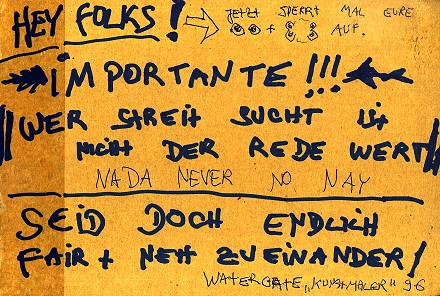 HEY FOLKS! JETZT SPERRT MAL EURE
+ AUF.
IMPORTANTE!!!
WER STREIT SUCHT IST
NICHT DER REDE WERT
NADA NEVER NO NAY
SEID DOCH ENDLICH
FAIR + NETT ZUEINANDER!
WATERGATE „KUNSTMALER" 96